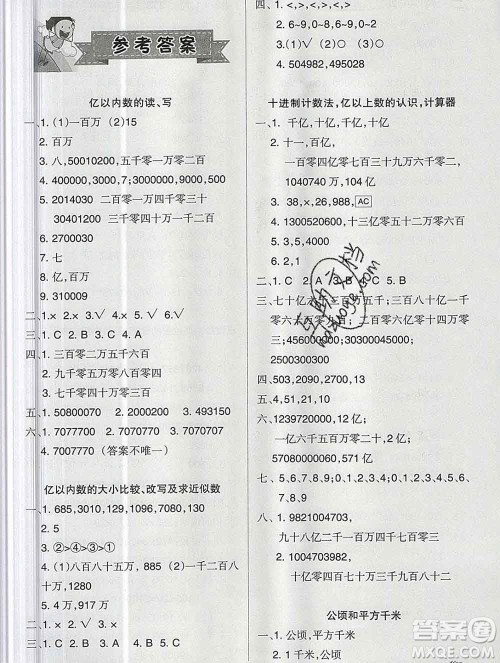 参考答案
亿以内数的读、写
一、1. (1)一百万 (2)15
2. 百万
3. 八,50010200,五千零一万零二百
4. 400000,3000,7;3000000,9000,500
5. 20174030,二百零一万零三百零三
30401200 三千零四十万一千二百
6. 2700030
7. 七
8. 亿,百万
9. 310009
二、1.× 2.× 3.√ 4.√ 5.×
三、1. C 2. B 3. A 4. C 5. B
四、1. 三百零二万五千六百
2. 九千零五万零八百七十
3. 七千零四十万零三百
五、1. 50800070 2. 4007003 3. 493150
六、1. 7077700 2. 7070707 3. 7007770
4. 7007770 (答案不唯一)
亿以内数的大小比较、改写及求近似数
一、1. 685,3010,129,1096,7090,9430
2. 5
3. ②>④>③>①
4. (1)八百八十五万, 885 (2)一千二百八
十万,1280
二、1.× 2.√ 3.× 4.√ 5.√
三、1. C 2. B 3. C 4. A
四、1. <,>,<,>,<,>
2. 6~9,0~4,0~4,5~9
3. (1)√ (2)○ (3)○
4. 504982, 495028
十进制计数法,亿以上数的认识,计算器
一、1. 千亿,十亿,千亿,十亿
2. 十一,百亿,
一百零四亿零七百三十九万六千零四十
1040740 万,104 亿
3. 38,×,26,988, AC
4. 1300520600,十三亿零五十二万零六百
5. 3,4,5
6. 2,1
二、1. C 2. A 3. B 4. C 5. B
三、七十亿零六百三十五万;三百八十亿六
千零九十万零四百;三百零八亿零二百
零三;456000000;30000320000;
2500300300
四、503,2090,2700,3
五、4,51,21,10
六、1239720000,12亿;
一亿六千五百万,2亿;
57080000000,571亿
七、5,6,7,8,9;0,1,2,3,4;0,1,2,3,4;
5,6,7,8,9
八、1. 9821004703,
九十八亿二千一百万四千七百零三
2. 1004703982,
一十亿零四百七十万三千九百八十二
公顷和平方千米
一、1. 公顷,平方千米
2. 公顷,公顷
答案圈
MXQE.COM